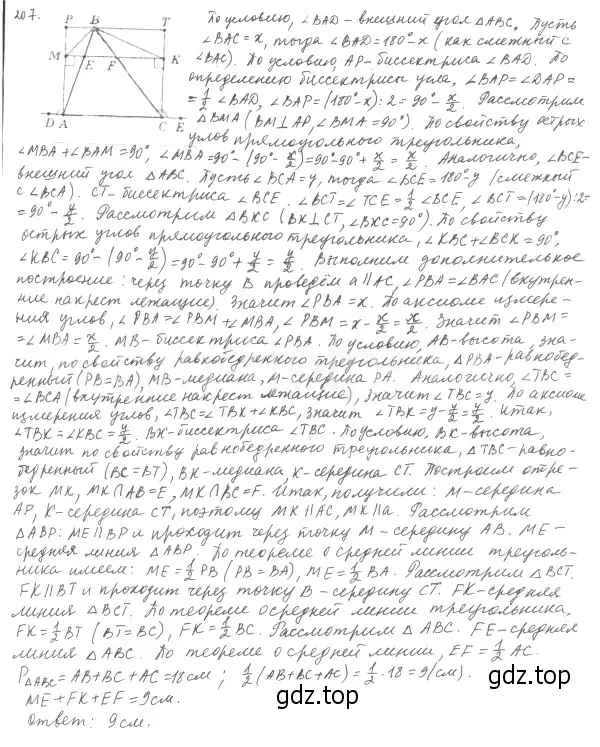 207.
P B T
M E F K
D A C E
По условию, ∠BAD – внешний угол △ABC. Пусть
∠BAC = x, тогда ∠BAD = 180° – x (как смежный с
∠BAC). По условию, AP – биссектриса ∠BAD. По
определению биссектрисы угла, ∠BAP = ∠DAP =
= 1/2 ∠BAD, ∠BAP = (180° – x) : 2 = 90° – x/2. Рассмотрим
△BMA (BM ⊥ AP, ∠BMA = 90°). По свойству острых
углов прямоугольного треугольника,
∠MBA + ∠BAM = 90°, ∠MBA = 90° – (90° – x/2) = 90° – 90° + x/2 = x/2. Аналогично, ∠BCE –
внешний угол △ABC. Пусть ∠BCA = y, тогда ∠BCE = 180° – y (смежный
с ∠BCA). CT – биссектриса ∠BCE. ∠BCT = ∠TCE = 1/2 ∠BCE, ∠BCT = (180° – y) : 2 =
= 90° – y/2. Рассмотрим △BKC (BK ⊥ CT, ∠BKC = 90°). По свойству
острых углов прямоугольного треугольника, ∠KBC + ∠BCK = 90°,
∠KBC = 90° – (90° – y/2) = 90° – 90° + y/2 = y/2. Выполним дополнительное
построение: через точку B проведём a ∥ AC, ∠PBA = ∠BAC (внутрен-
ние накрест лежащие). Значит ∠PBA = x. По аксиоме измере-
ния углов, ∠PBA = ∠PBM + ∠MBA, ∠PBM = x – x/2 = x/2. Значит ∠PBM =
= ∠MBA = x/2. MB – биссектриса ∠PBA. По условию, AB – высота, зна-
чит, по свойству равнобедренного треугольника, △PBA – равнобед-
ренный (PB = BA), MB – медиана, M – середина PA. Аналогично, ∠TBC =
= ∠BCA (внутренние накрест лежащие), значит ∠TBC = y. По аксиоме
измерения углов, ∠TBC = ∠TBK + ∠KBC, значит ∠TBK = y – y/2 = y/2. Итак,
∠TBK = ∠KBC = y/2. BK – биссектриса ∠TBC. По условию, BK – высота,
значит по свойству равнобедренного треугольника, △TBC – равно-
бедренный (BC = BT), BK – медиана, K – середина CT. Построим отре-
зок MK, MK ∩ AB = E, MK ∩ BC = F. Итак, получили: M – середина
AP, K – середина CT, поэтому MK ∥ AC, MK ∥ a. Рассмотрим
△ABP: ME ∥ BP и проходит через точку M – середину AB. ME –
средняя линия △ABP. По теореме о средней линии треуголь-
ника имеем: ME = 1/2 PB (PB = BA), ME = 1/2 BA. Рассмотрим △BCT.
FK ∥ BT и проходит через точку B – середину CT. FK – средняя
линия △BCT. По теореме о средней линии треугольника,
FK = 1/2 BT (BT = BC), FK = 1/2 BC. Рассмотрим △ABC. FE – средняя
линия △ABC. По теореме о средней линии, EF = 1/2 AC.
P△ABC = AB + BC + AC = 18 см; 1/2 (AB + BC + AC) = 1/2 · 18 = 9 (см).
ME + FK + EF = 9 см.
Ответ: 9 см.
gdz.top
gdz.top